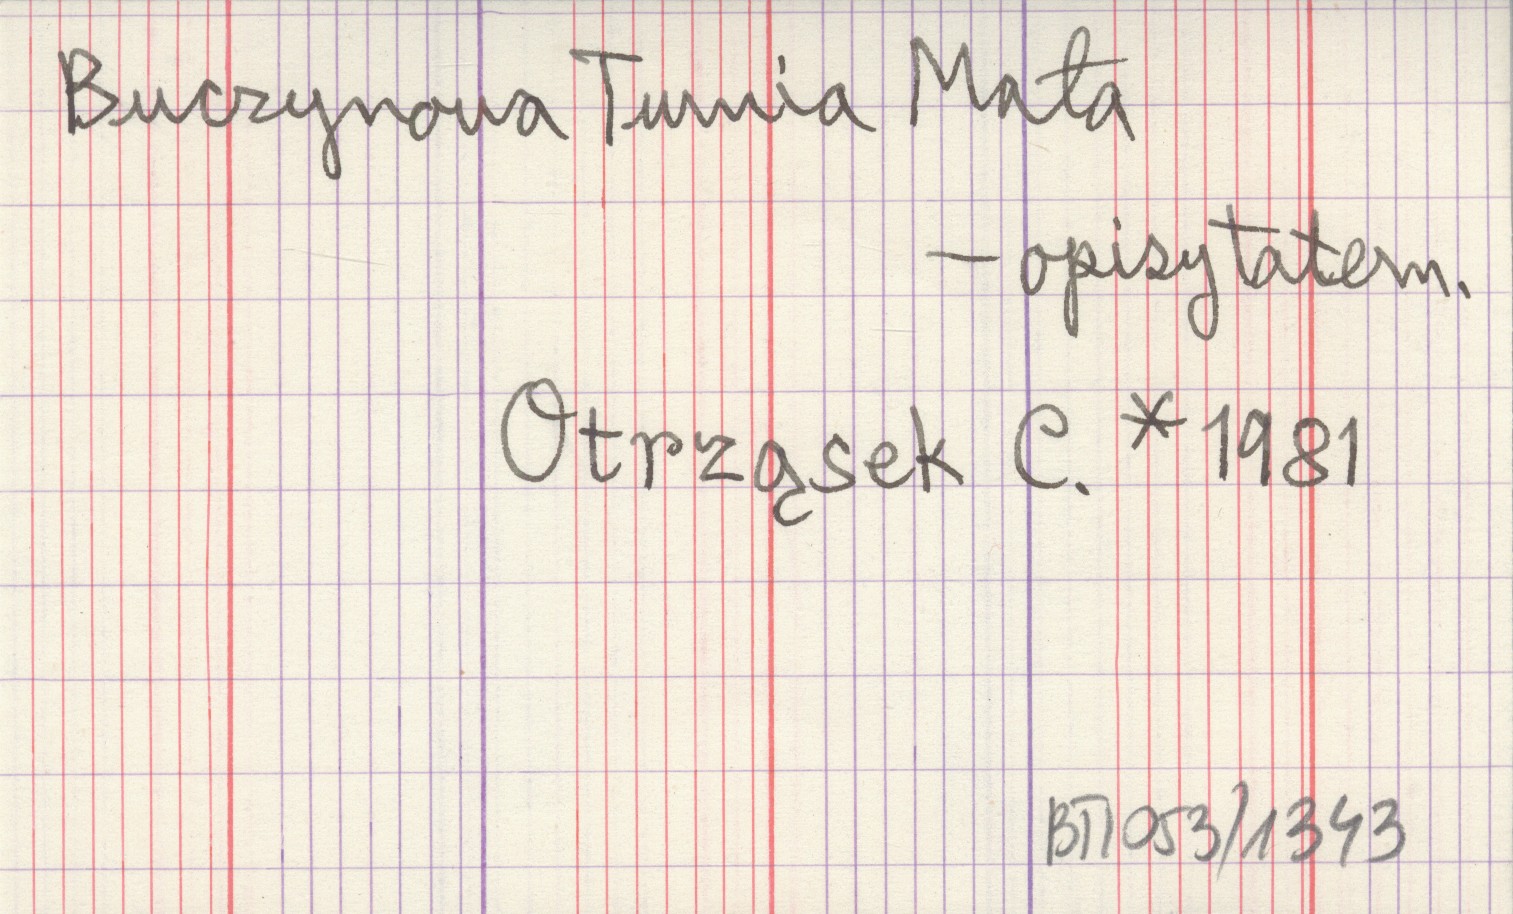 Buczynowa Turnia Mała
- opisy tatern.
Otrząsek C. * 1981
BTI 053/1343